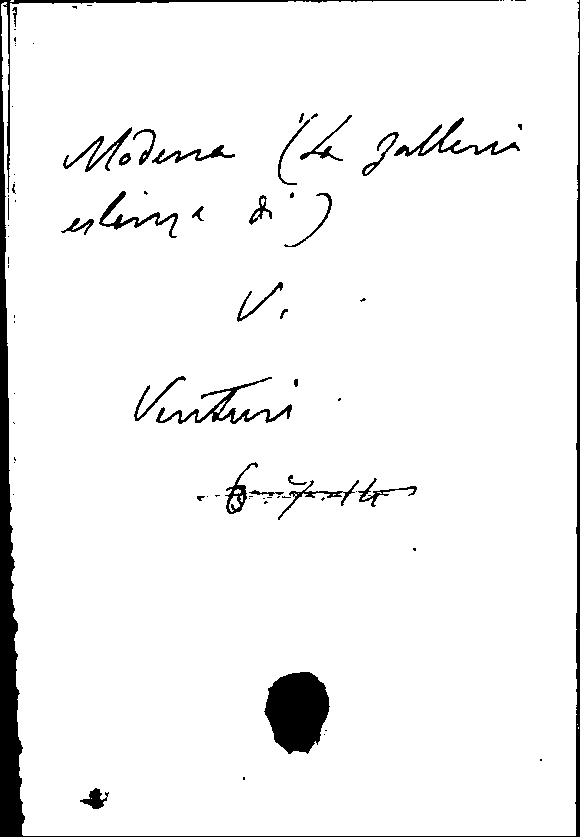 Modena (La galleria
estense di)
V.
Venturi